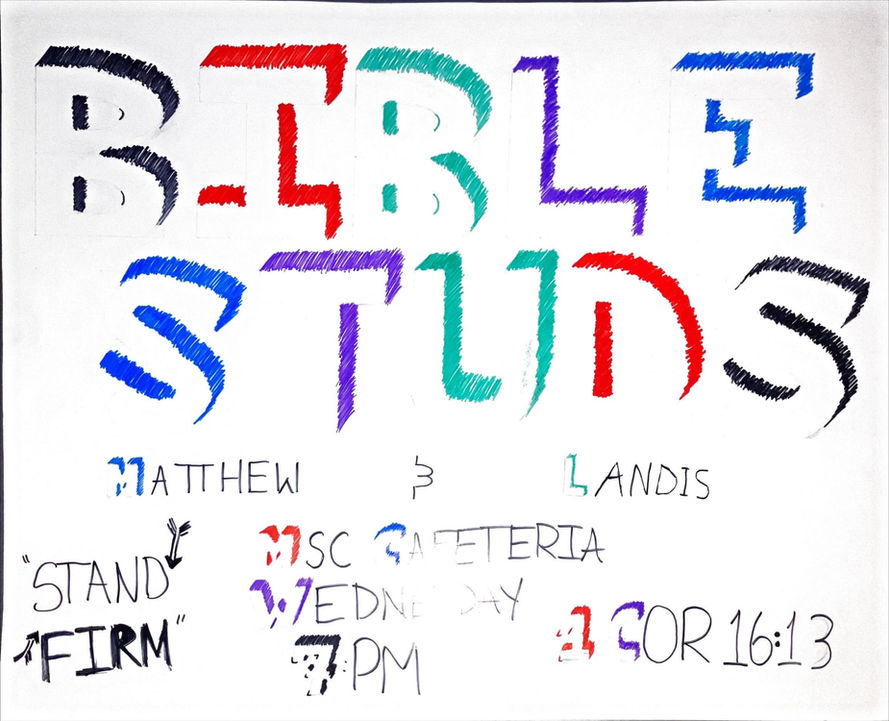 BIBLE
STUDS
MATTHEW & LANDIS
MSC CAFETERIA
WEDNESDAY
7 PM
"STAND
FIRM"
1 COR 16:13